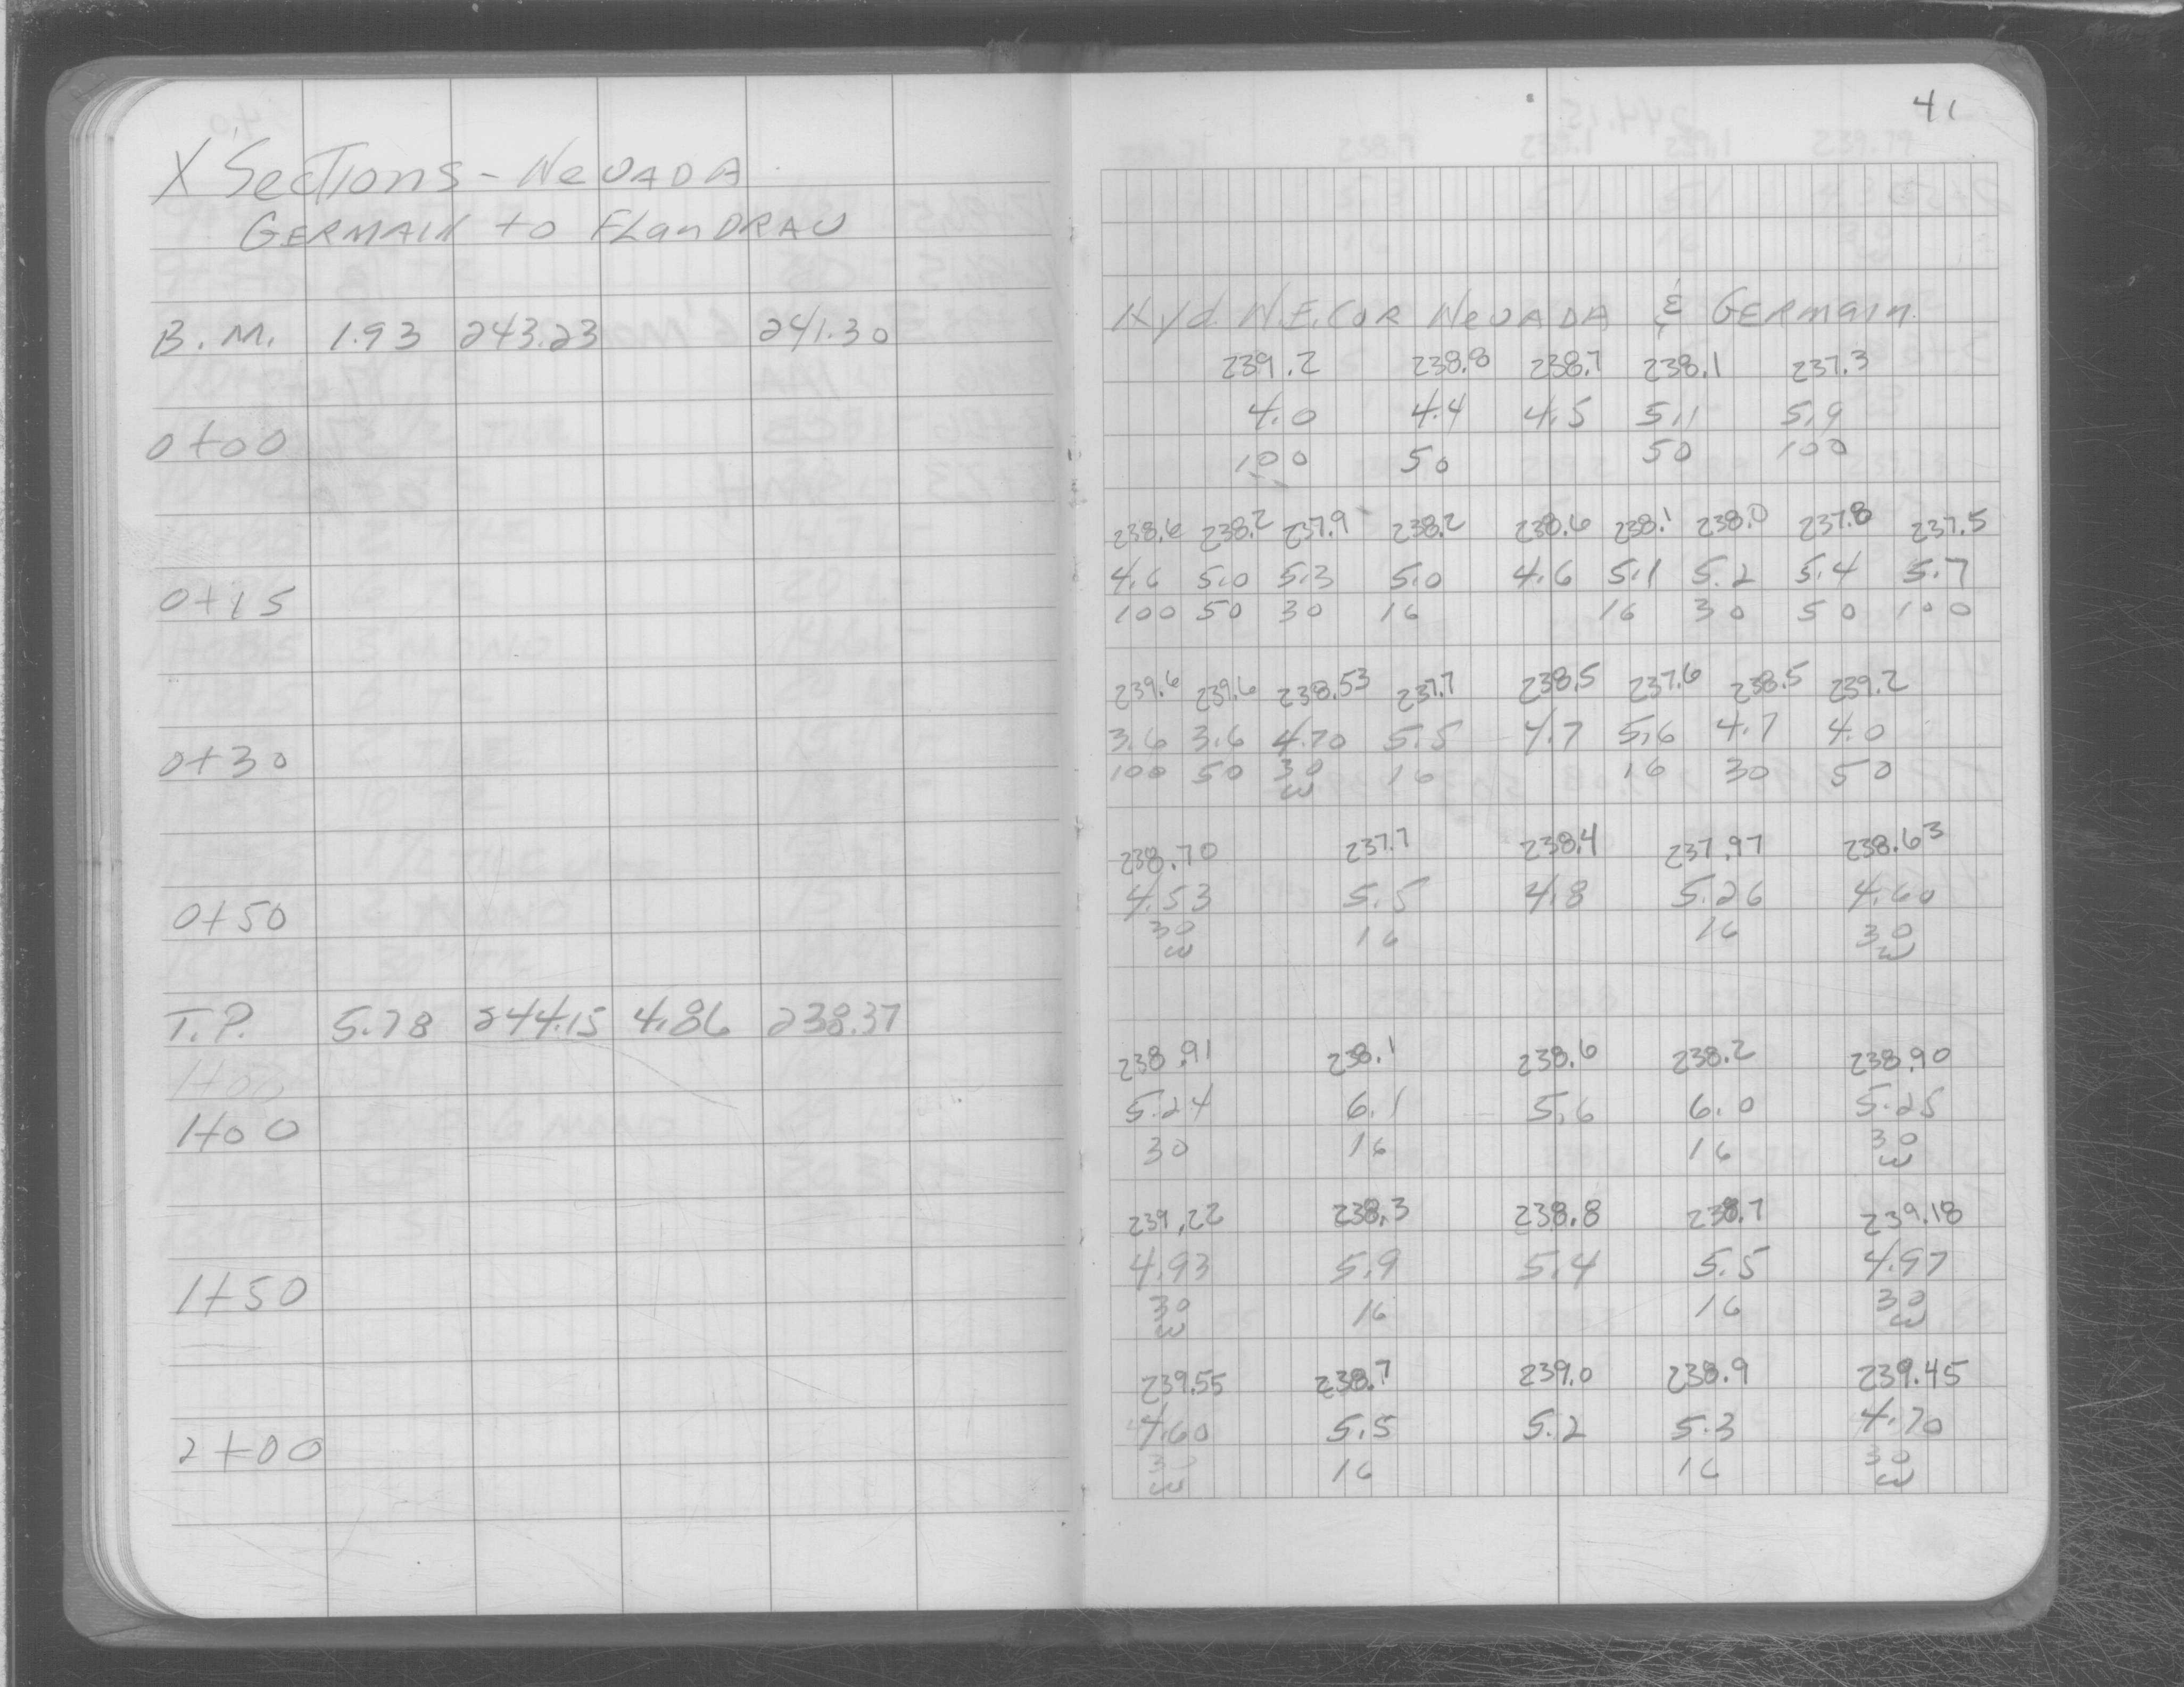 X Sections - Nevada
Germain to Flandrau
B.M. 1.93 243.23 241.30
0+00
0+15
0+30
0+50
T.P. 5.78 244.15 4.86 238.37
1+00
1+00
1+50
2+00
41
Hyd. N.E. Cor Nevada & Germain.
239.2 238.8 238.7 238.1 237.3
4.0 4.4 4.5 5.1 5.9
100 50 50 100
238.6 238.2 237.9 238.2 238.6 238.1 238.0 237.8 237.5
4.6 5.0 5.3 5.0 4.6 5.1 5.2 5.4 5.7
100 50 30 16 16 30 50 100
239.6 239.6 238.53 237.7 238.5 237.6 238.5 239.2
3.6 3.6 4.70 5.5 4.7 5.6 4.7 4.0
100 50 30 16 16 30 50
W
238.70 237.7 238.4 237.97 238.63
4.53 5.5 4.8 5.26 4.60
30 16 16 30
W W
238.91 238.1 238.6 238.2 238.90
5.24 6.1 5.6 6.0 5.25
30 16 16 30
W
239.22 238.3 238.8 238.7 239.18
4.93 5.9 5.4 5.5 4.97
30 16 16 30
W W
239.55 238.7 239.0 238.9 239.45
4.60 5.5 5.2 5.3 4.70
30 16 16 30
W W